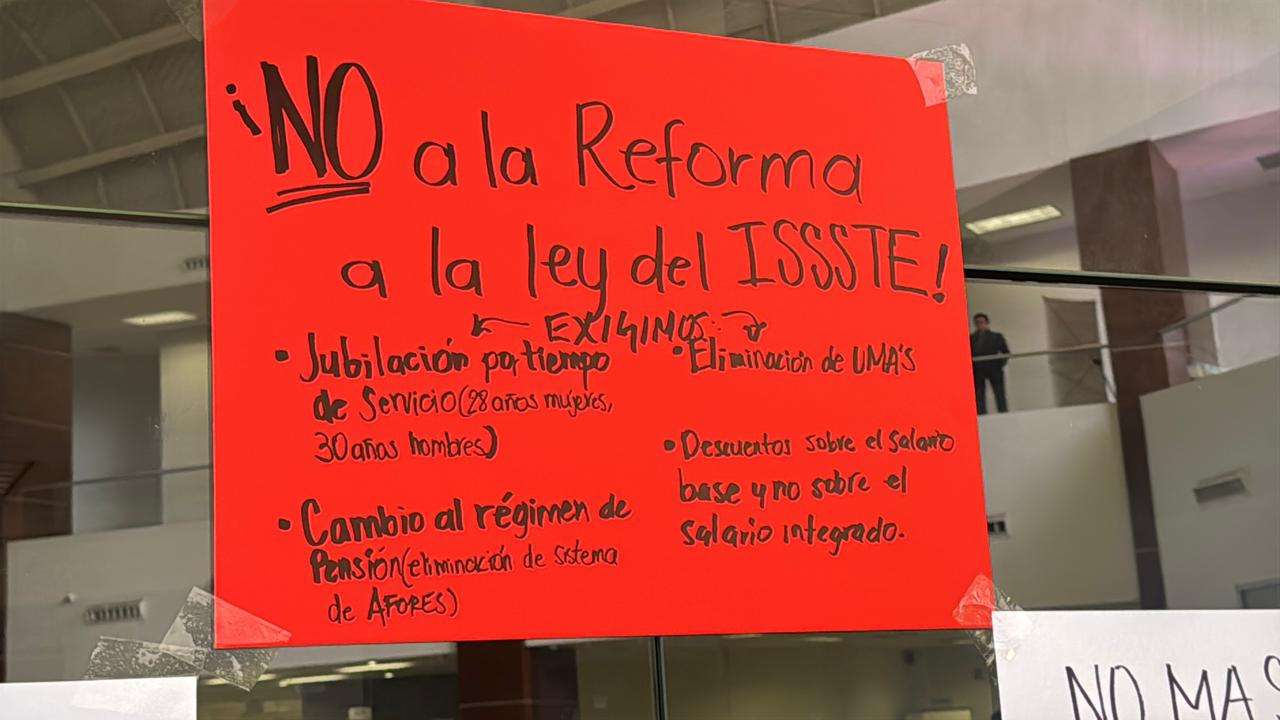 ¡NO a la Reforma
a la ley del ISSSTE!
EXIGIMOS:
• Jubilación por tiempo
de Servicio (28 años mujeres,
30 años hombres)
• Cambio al régimen de
Pensión (eliminación de sistema
de AFORES)
• Eliminación de UMA'S
• Descuentos sobre el salario
base y no sobre el
salario integrado.
NO MAS